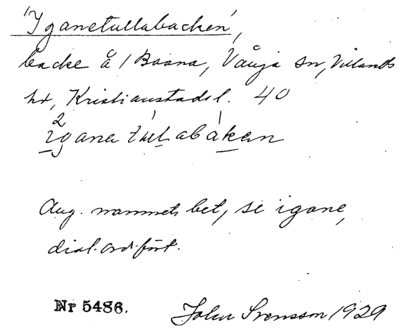 'Iganetullabacken',
backe å 1 Bosna, Vånga sn, Villands
hd, Kristianstads l. 40
2 igana tulabakan
Ang. namnets bet, se igane,
dial.ord.fört.
Nr 5486. John Svensson 1929